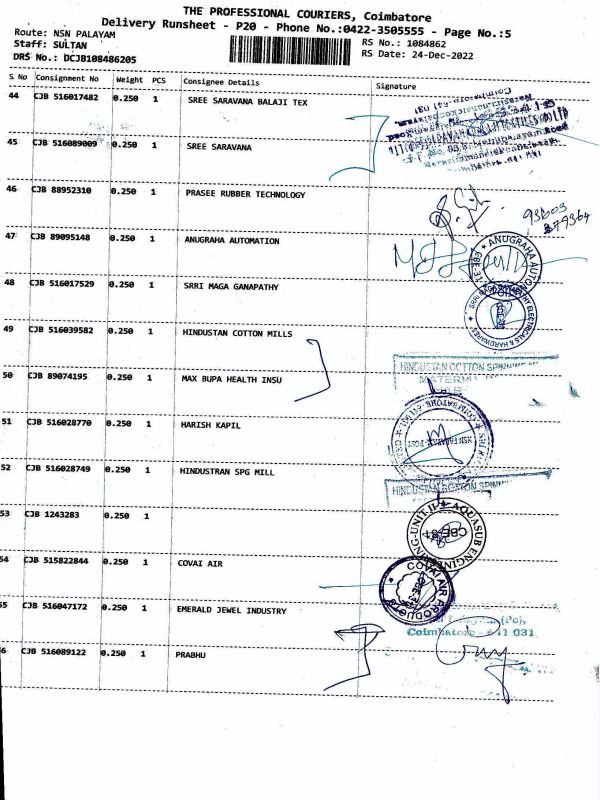 THE PROFESSIONAL COURIERS, Coimbatore
Delivery Runsheet - P20 - Phone No.:0422-3505555 - Page No.:5
Route: NSN PALAYAM
Staff: SULTAN
DRS No.: DCJB108486205
RS No.: 1084862
RS Date: 24-Dec-2022
S No Consignment No Weight PCS Consignee Details Signature
44 CJB 516017482 0.250 1 SREE SARAVANA BALAJI TEX
45 CJB 516089009 0.250 1 SREE SARAVANA
46 CJB 88952310 0.250 1 PRASEE RUBBER TECHNOLOGY
47 CJB 89095148 0.250 1 ANUGRAHA AUTOMATION
ANUGRAHA AUTO
48 CJB 516017529 0.250 1 SRRI MAGA GANAPATHY
ELECTRICALS & HARDWARES
49 CJB 516039582 0.250 1 HINDUSTAN COTTON MILLS
HINDUSTAN COTTON SPINN
50 CJB 89074195 0.250 1 MAX BUPA HEALTH INSU
51 CJB 516028770 0.250 1 HARISH KAPIL
NSN PALAYAM POST
52 CJB 516028749 0.250 1 HINDUSTRAN SPG MILL
HINDUSTAN COTTON SPINN
53 CJB 1243283 0.250 1
AQUASUB ENGINEE ING-UNIT.II
54 CJB 515822844 0.250 1 COVAI AIR
COVAI AIR PRODUCTS
55 CJB 516047172 0.250 1 EMERALD JEWEL INDUSTRY
(Po),
Coimbatore - 641 031
56 CJB 516089122 0.250 1 PRABHU